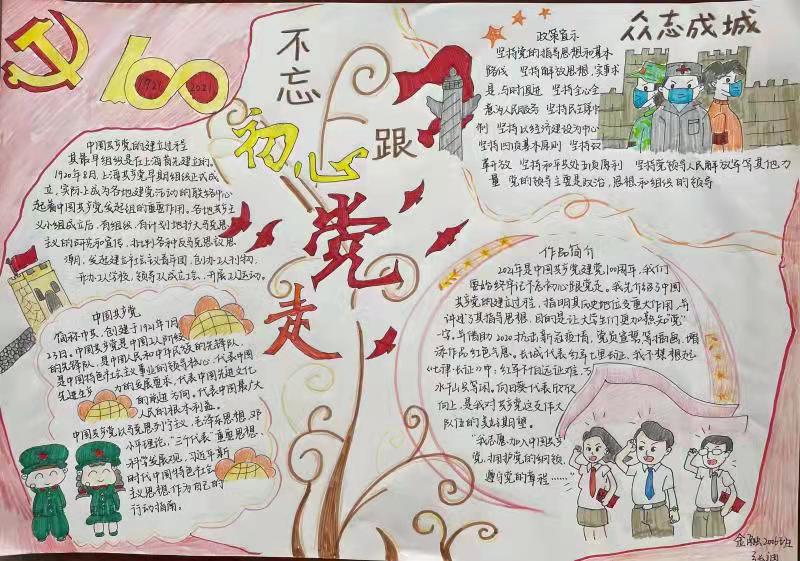 1921
2021
不忘
初心
跟
党
走
中国共产党的建立过程
其最早组织是在上海首先建立的。
1920年8月,上海共产党早期组织正式成
立,实际上成为各地建党活动的联络中心
起着中国共产党发起组的重要作用。各地共产主
义小组成立后,有组织、有计划地扩大马克思
主义的研究和宣传,批判各种反马克思主义思
潮,发起建立社会主义青年团,创办工人刊物,
开办工人学校,领导工人成立工会,开展工人运动。
中国共产党
简称中共,创建于1921年7月
23日。中国共产党是中国工人阶级
的先锋队,是中国人民和中华民族的先锋队,
是中国特色社会主义事业的领导核心,代表中国
先进生产力的发展要求,代表中国先进文化
的前进方向,代表中国最广大
人民的根本利益。
中国共产党以马克思列宁主义、毛泽东思想、邓
小平理论、“三个代表”重要思想、
科学发展观、习近平新
时代中国特色社会
主义思想作为自己的
行动指南。
政策宣示
坚持党的指导思想和基本
路线 坚持解放思想,实事求
是,与时俱进 坚持全心全
意为人民服务 坚持民主集中
制 坚持以经济建设为中心
坚持四项基本原则 坚持改
革开放 坚持和平共处五项原则 坚持党领导人民解放军等其他力
量 党的领导主要是政治、思想和组织的领导
众志成城
作品简介
2021年是中国共产党建党100周年,我们
要始终牢记不忘初心跟党走。我先介绍了中国
共产党的建立过程,指明其历史地位及重大作用,并
讲述了其指导思想,目的是让大学生们更加熟知“党”
字。并借助2020抗击新冠疫情,党员宣誓等插画,增
添作品红色气息。长城代表红军长征,我不禁想起
《七律·长征》中,红军不怕远征难,万
水千山只等闲。向日葵代表欣欣
向上,是我对共产党这支伟大
队伍的美好期望。
“我志愿加入中国共产
党,拥护党的纲领,
遵守党的章程……”
金融2006班